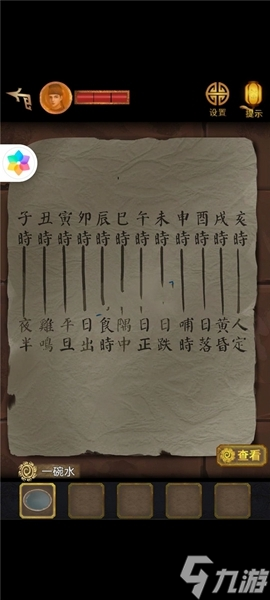 设置
提示
子 丑 寅 卯 辰 巳 午 未 申 酉 戌 亥
時 時 時 時 時 時 時 時 時 時 時 時
夜 雞 平 日 食 隅 日 日 哺 日 黄 人
半 鳴 旦 出 時 中 正 跌 時 落 昏 定
查看
一碗水
九游